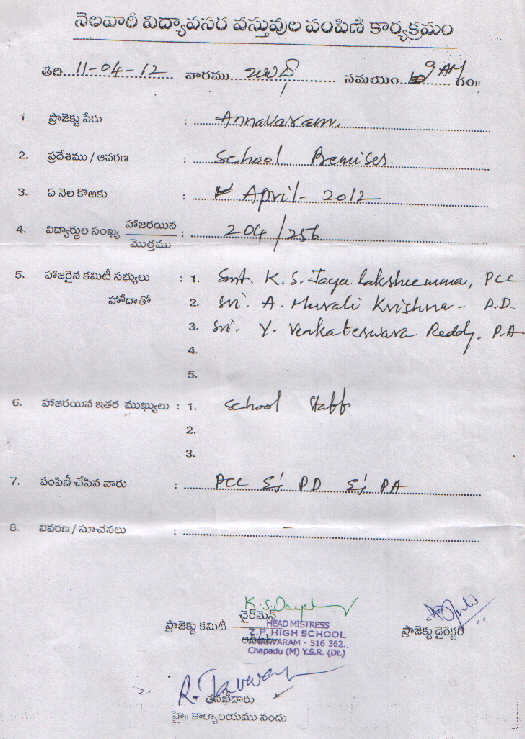 నెలవారీ విద్యావసర వస్తువుల పంపిణీ కార్యక్రమం
తేది 11-04-12 వారము బుధ సమయం 9 AM గం॥
1 ప్రాజెక్టు పేరు : Annavaram.
2. ప్రదేశము / ఆవరణ : School Premises
3. ఏ నెల కొఱకు : April - 2012
4. విద్యార్థుల సంఖ్య హాజరయిన / మొత్తము : 204/256
5. హాజరైన కమిటీ సభ్యులు : 1. Smt. K. S. Jaya Lakshmamma, PCC
హోదాతో 2. Sri. A. Murali Krishna. P.D.
3. Sri. Y. Venkateswara Reddy, P.A
4.
5.
6. హాజరయిన ఇతర ముఖ్యులు : 1. School Staff
2.
3.
7. పంపిణీ చేసిన వారు : PCC & PD & PA
8. వివరణ / సూచనలు :
ప్రాజెక్టు కమిటీ ఛైర్మెన్ ప్రాజెక్టు డైరెక్టర్
HEAD MISTRESS
Z.P. HIGH SCHOOL
ANNAVARAM - 516 362.
Chapadu (M) Y.S.R. (Dt.)
తనిఖీదారు
హై॥ కార్యాలయము నందు